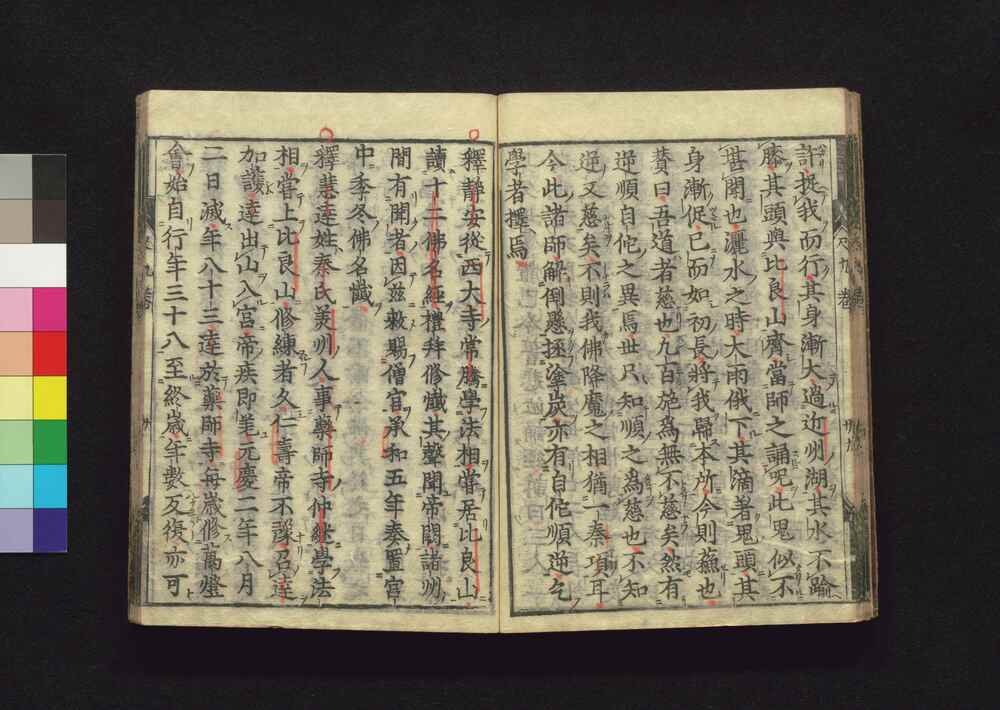 許捉我而行其身漸大過近州湖其水不踰
膝其頭與比良山齊當師之誦呪此鬼似不
甚聞也灑水之時大雨俄下其滴著鬼頭其
身漸促已而如初長將我歸本所今則蘓也
賛曰吾道者慈也九百施為無不慈矣然有
逆順自佗之異焉世只知順之為慈也不知
逆又慈矣不則我佛降魔之相猶一秦項耳
今此諸師解倒懸拯塗炭亦有自佗順逆乞
學者擇焉
釋靜安從西大寺常騰學法相嘗居比良山
讀十二佛名經禮拜修懺其聲聞帝闕諸州
間有聞者因茲敕賜僧官承和五年奏置宮
中季冬佛名懺
釋慧達姓秦氏美州人事藥師寺仲継學法
相嘗上比良山修練者久仁壽帝不豫召達
加護達出山入宮帝疾即差元慶二年八月
二日滅年八十三達於藥師寺每歲修萬燈
會始自行年三十八至終歲年數反復亦可